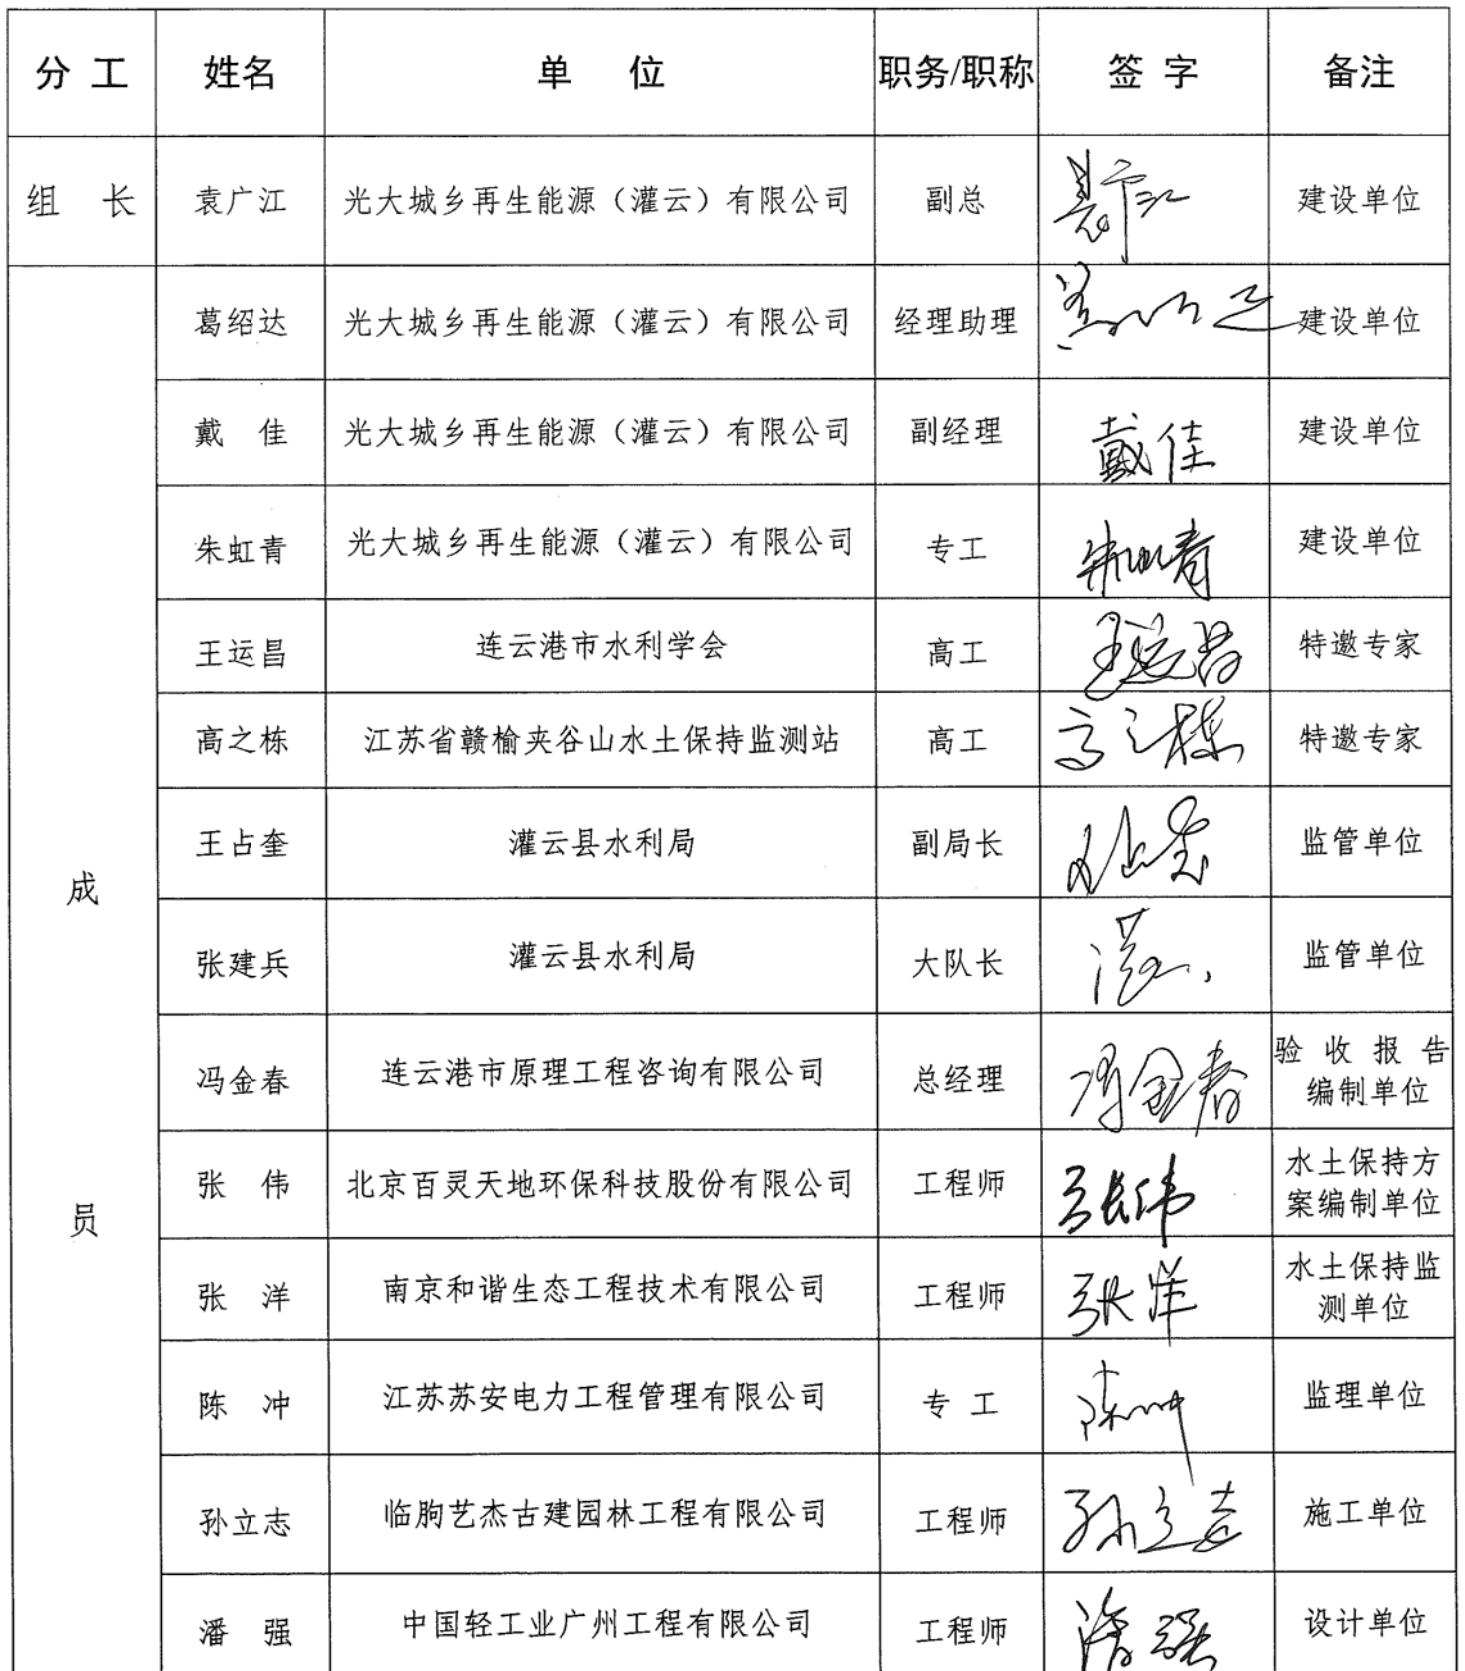 分 工 姓名 单 位 职务/职称 签 字 备注
组 长 袁广江 光大城乡再生能源（灌云）有限公司 副总 袁广江 建设单位
葛绍达 光大城乡再生能源（灌云）有限公司 经理助理 建设单位
戴 佳 光大城乡再生能源（灌云）有限公司 副经理 戴佳 建设单位
朱虹青 光大城乡再生能源（灌云）有限公司 专工 朱虹青 建设单位
王运昌 连云港市水利学会 高工 王运昌 特邀专家
高之栋 江苏省赣榆夹谷山水土保持监测站 高工 高之栋 特邀专家
王占奎 灌云县水利局 副局长 王占奎 监管单位
成
张建兵 灌云县水利局 大队长 监管单位
冯金春 连云港市原理工程咨询有限公司 总经理 冯金春 验 收 报 告
编制单位
员
张 伟 北京百灵天地环保科技股份有限公司 工程师 张伟 水土保持方
案编制单位
张 洋 南京和谐生态工程技术有限公司 工程师 张洋 水土保持监
测单位
陈 冲 江苏苏安电力工程管理有限公司 专 工 陈冲 监理单位
孙立志 临朐艺杰古建园林工程有限公司 工程师 孙立志 施工单位
潘 强 中国轻工业广州工程有限公司 工程师 潘强 设计单位